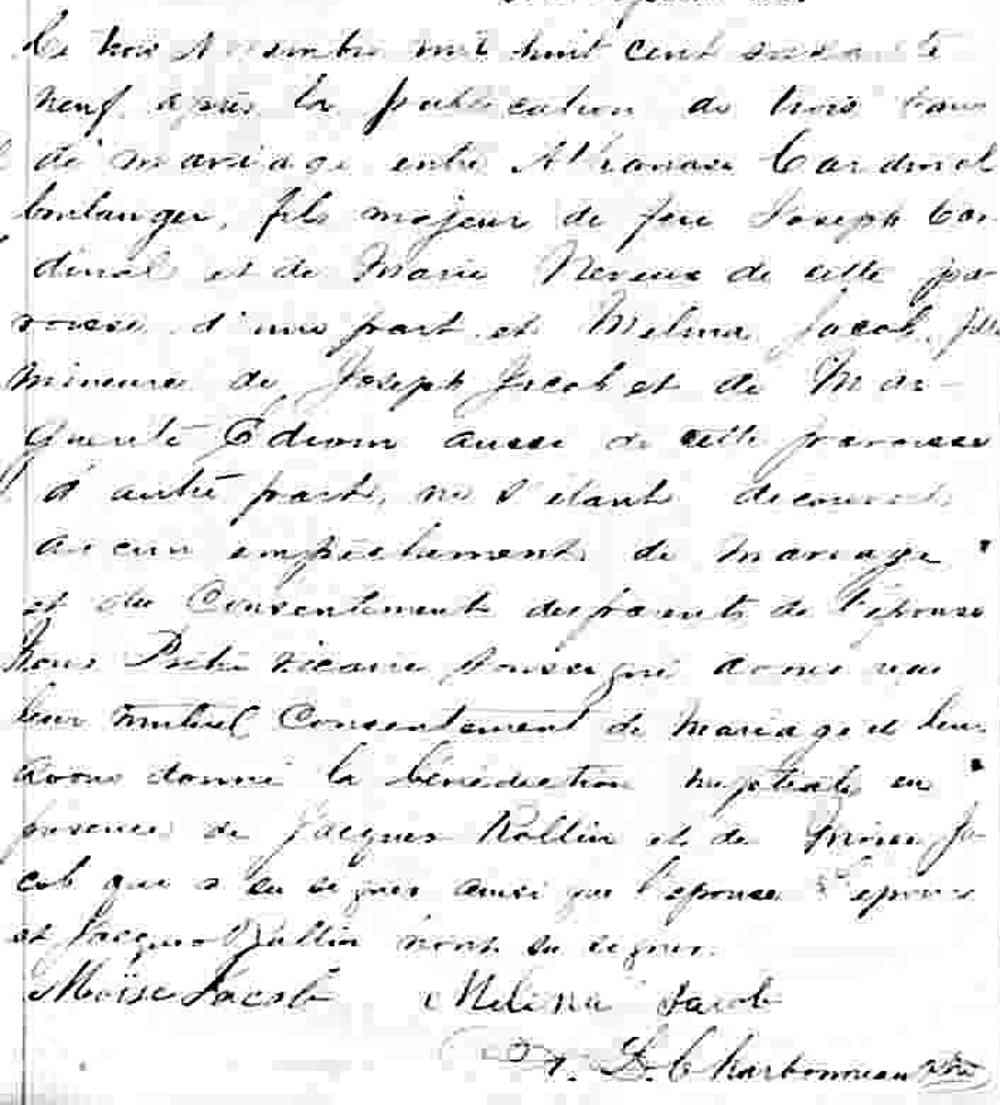 Le trois Novembre mil huit cent soixante
neuf après la publication de trois bans
de mariage entre Athanase Cardinal
boulanger, fils majeur de feu Joseph Car
dinal et de Marie Neveux de cette pa
roisse d'une part et Melina Jacob fille
mineure de Joseph Jacob et de Mar-
guerite Edmon aussi de cette paroisse
d'autre part, ne s'étant découvert
aucun empêchement de mariage
et du Consentement des parents de l'épouse
Nous Prêtre vicaire soussigné avons reçu
leur mutuel Consentement de mariage et leur
avons donné la bénédiction nuptiale en
présence de Jacques Rollin et de Moïse Ja
cob qui a su signer ainsi que l'épouse L'époux
et Jacques Rollin n'ont su signer.
Moïse Jacob Melina Jacob
D. Charbonneau Ptre